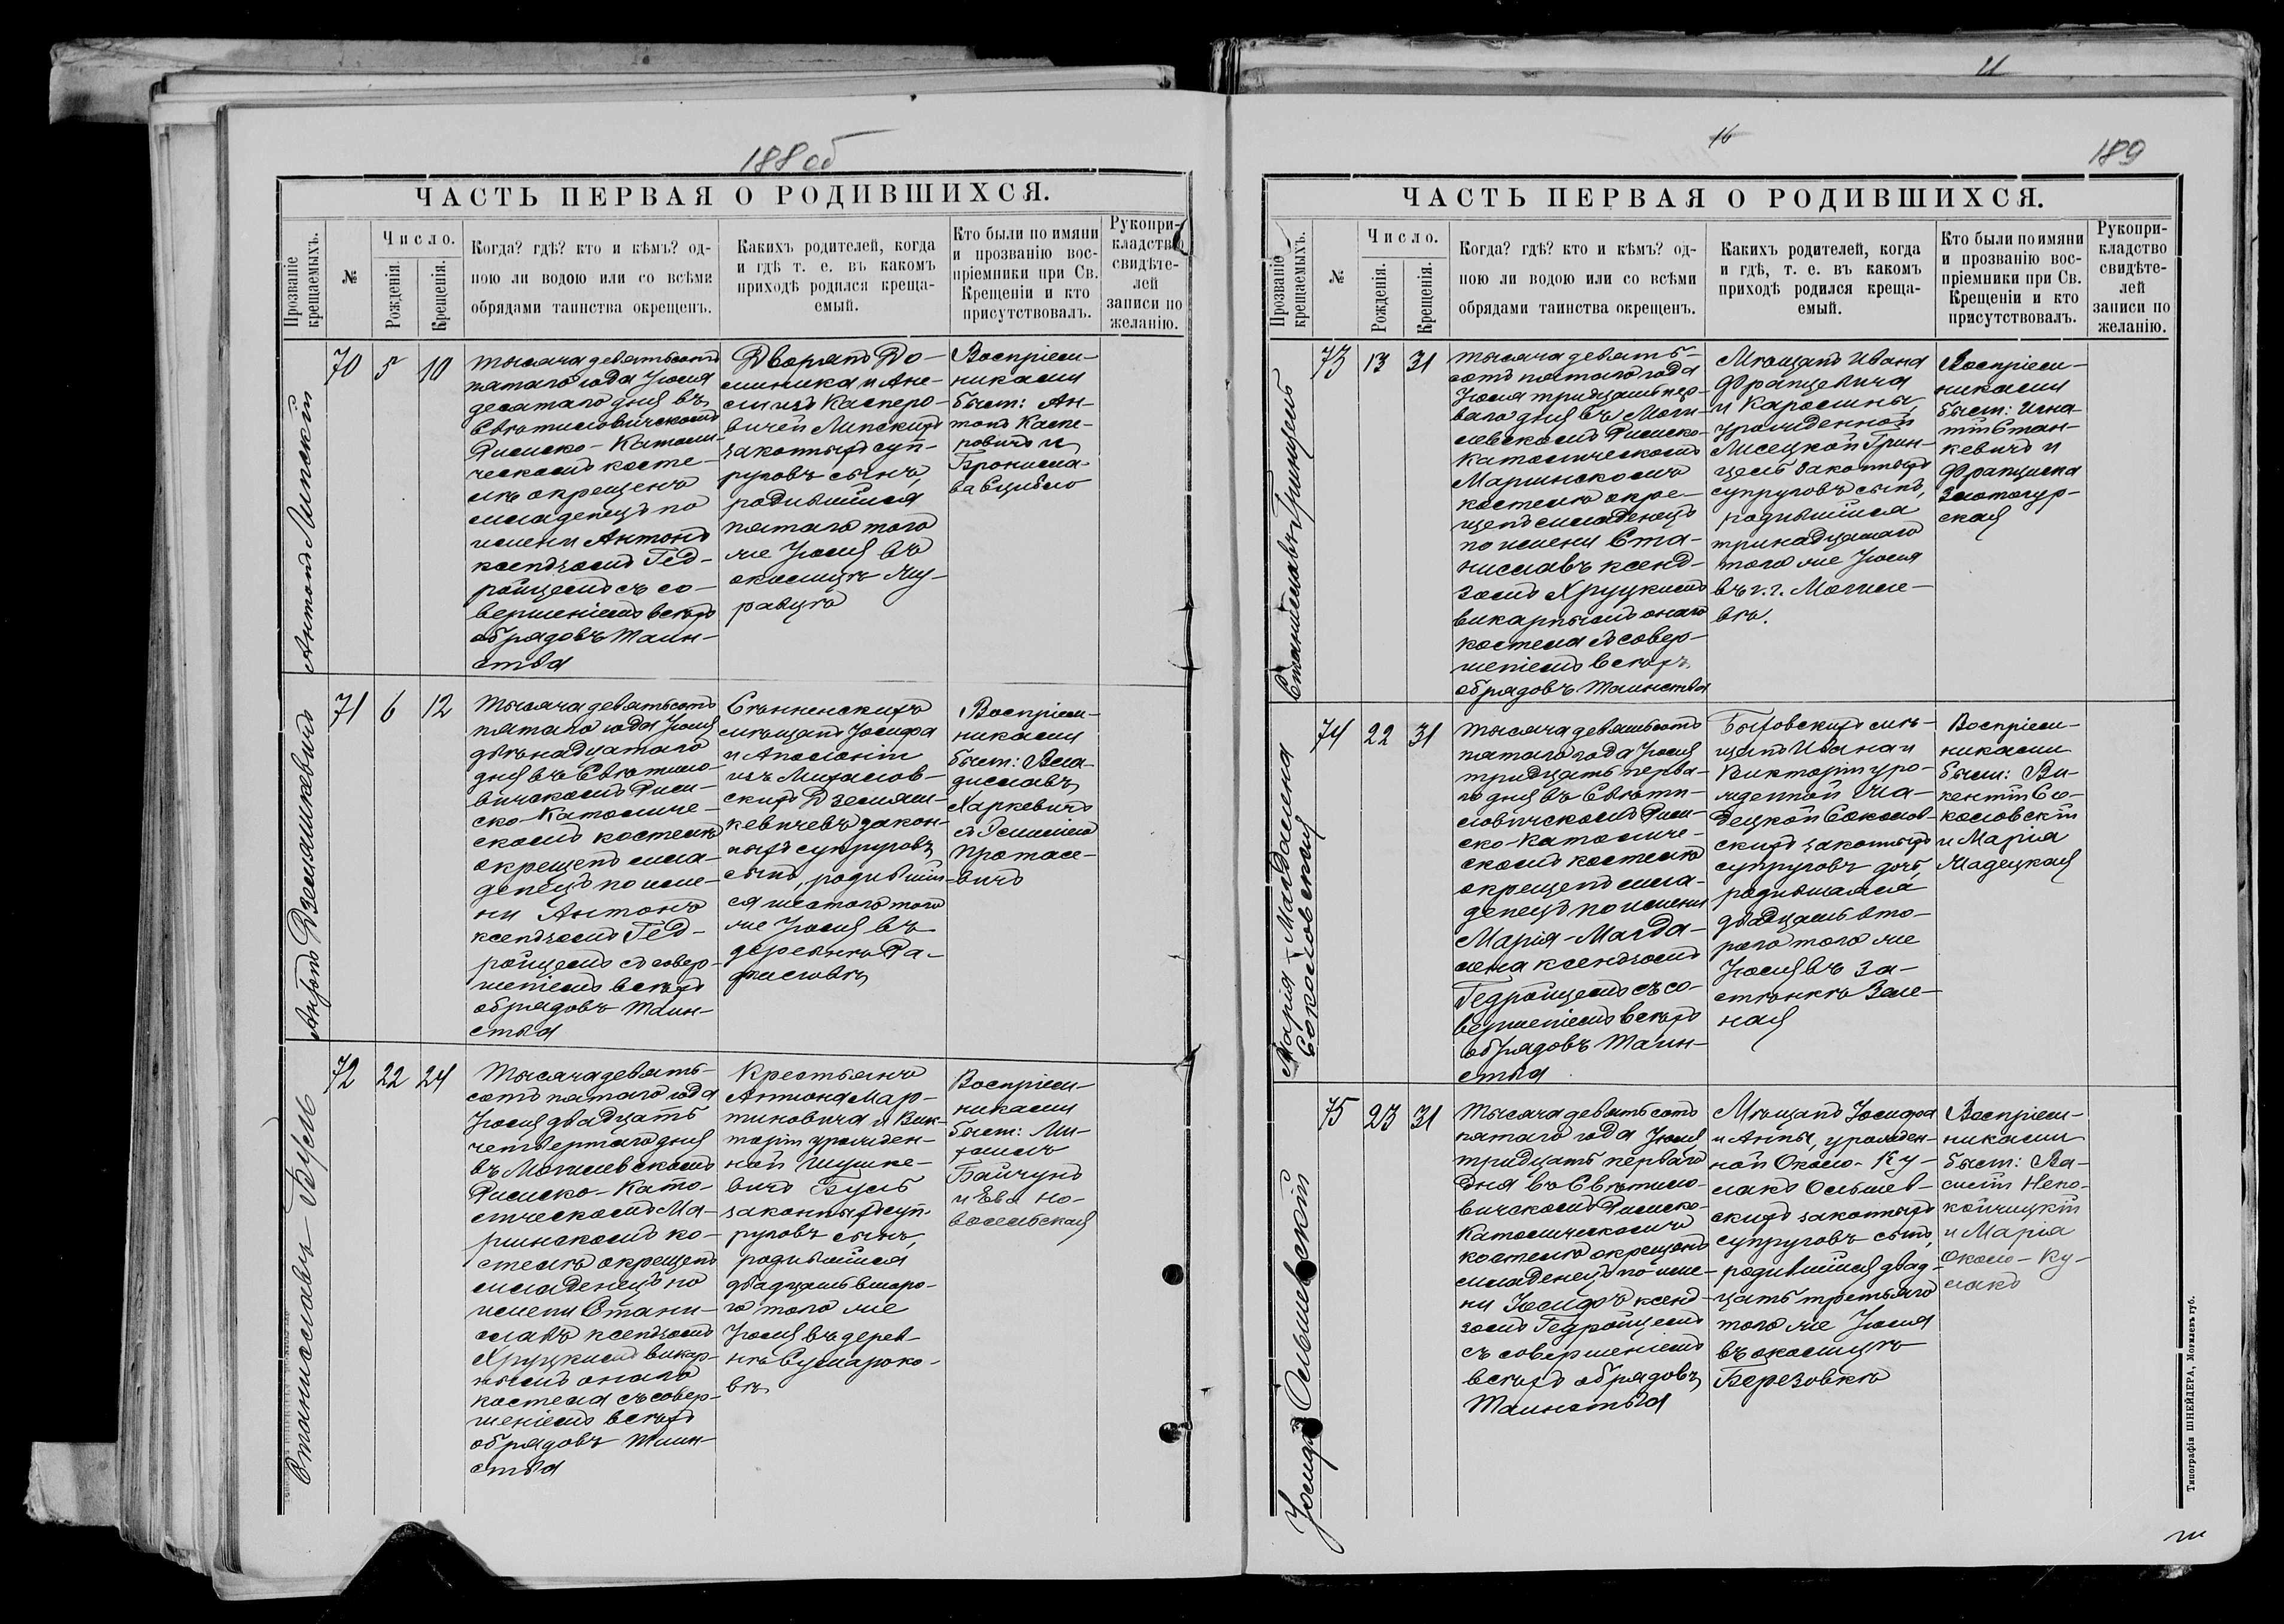 188 об
ЧАСТЬ ПЕРВАЯ О РОДИВШИХСЯ.
Прозваніе крещаемыхъ.
№
Число.
Рожденія.
Крещенія.
Когда? гдѣ? кто и кѣмъ? од-
ною ли водою или со всѣми
обрядами таинства окрещенъ.
Какихъ родителей, когда
и гдѣ т. е. въ какомъ
приходѣ родился креща-
емый.
Кто были по имяни
и прозванію вос-
пріемники при Св.
Крещеніи и кто
присутствовалъ.
Рукопри-
кладство
свидѣте-
лей
записи по
желанію.
Антонъ Липскій
70 5 10
Тысяча девятьсотъ
пятаго года Іюля
десятаго дня въ
Свѣтиловичскомъ
Римско-Католи-
ческомъ косте-
лѣ окрещенъ
младенецъ по
имени Антонъ
ксендзомъ Гед-
ройцемъ съ со-
вершеніемъ всѣхъ
обрядовъ Таин-
ства
Дворянъ До-
миника и Аме-
ліи изъ Касперо-
вичей Липскихъ
законныхъ суп-
руговъ сынъ,
родившійся
пятаго того
же Іюля въ
околицѣ Жу-
равцѣ
Воспріем-
никами
были: Ан-
тонъ Каспе-
ровичъ и
Брронисла-
ва
Антонъ Дземяшкевичъ
71 6 12
Тысяча девятьсотъ
пятаго года Іюля
двѣнадцатаго
дня въ Свѣтило-
вичскомъ Рим-
ско-Католиче-
скомъ костелѣ
окрещенъ мла-
денецъ по име-
ни Антонъ
ксендзомъ Гед-
ройцемъ съ совер-
шеніемъ всѣхъ
обрядовъ Таин-
ства
Сѣнненскихъ
мѣщанъ Іосифа
и Аполоніи
изъ Михалов-
скихъ Дземяш-
кевичевъ закон-
ныхъ супруговъ
сынъ, родившій-
ся шестого того
же Іюля въ
деревнѣ Ра-
филовѣ
Воспріем-
никами
были: Вла-
диславъ
Харкевичъ
и Эмилія
Протасе-
вичъ
Станиславъ Бусь
72 22 24
Тысяча девять-
сотъ пятаго года
Іюля двадцать
четвертаго дня
въ Могилевскомъ
Римско-Като-
лическомъ Ма-
ріинскомъ ко-
стелѣ окрещенъ
младенецъ по
имени Стани-
славъ ксендзомъ
Хруцкимъ викар-
нымъ онаго
костела съ совер-
шеніемъ всѣхъ
обрядовъ Таин-
ства
Крестьянъ
Антона Мар-
тиновича и Вик-
торіи урожден-
ной Шушке-
вичъ Бусь
законныхъ суп-
руговъ сынъ,
родившійся
двадцать второ-
го того же
Іюля въ дерев-
нѣ Сумароко-
вѣ
Воспріем-
никами
были: Ми-
хаилъ
Байчунъ
и Ева Но-
восельская
16
189
ЧАСТЬ ПЕРВАЯ О РОДИВШИХСЯ.
Прозваніе крещаемыхъ.
№
Число.
Рожденія.
Крещенія.
Когда? гдѣ? кто и кѣмъ? од-
ною ли водою или со всѣми
обрядами таинства окрещенъ.
Какихъ родителей, когда
и гдѣ, т. е. въ какомъ
приходѣ родился креща-
емый.
Кто были по имяни
и прозванію вос-
пріемники при Св.
Крещеніи и кто
присутствовалъ.
Рукопри-
кладство
свидѣте-
лей
записи по
желанію.
Станиславъ Гринцель
73 13 31
Тысяча девять-
сотъ пятаго года
Іюля тридцать пер-
ваго дня въ Моги-
левскомъ Римско-
Католическомъ
Маріинскомъ
костелѣ окре-
щенъ младенецъ
по имени Ста-
ниславъ ксенд-
зомъ Хруцкимъ
викарнымъ онаго
костела съ совер-
шеніемъ всѣхъ
обрядовъ Таинства
Мѣщанъ Ивана
Францевича
и Каролины
урожденной
Лисецкой Грин-
цель законныхъ
супруговъ сынъ,
родившійся
тринадцатаго
того же Іюля
въ г. г. Могиле-
вѣ.
Воспріем-
никами
были: Игна-
тій Стан-
кевичъ и
Франциска
Злотогур-
ская
Марія-Магдалена
Соколовская
74 22 31
Тысяча девятьсотъ
пятаго года Іюля
тридцать перва-
го дня въ Свѣти-
ловичскомъ Рим-
ско-Католиче-
скомъ костелѣ
окрещенъ мла-
денецъ по имени
Марія-Магда-
лена ксендзомъ
Гедройцемъ съ со-
вершеніемъ всѣхъ
обрядовъ Таин-
ства
Быховскихъ мѣ-
щанъ Ивана и
Викторіи уро-
жденной Ма-
децкой Соколов-
скихъ законныхъ
супруговъ дочь,
родившаяся
двадцать вто-
рого того же
Іюля въ за-
стѣнкѣ Зеле-
ная
Воспріем-
никами
были: Ви-
кентій Со-
коловскій
и Марія
Мадецкая
Іосифъ Ольшевскій
75 23 31
Тысяча девятьсотъ
пятаго года Іюля
тридцать перваго
дня въ Свѣтило-
вичскомъ Римско-
Католическомъ
костелѣ окрещенъ
младенецъ по име-
ни Іосифъ ксенд-
зомъ Гедройцемъ
съ совершеніемъ
всѣхъ обрядовъ
Таинства
Мѣщанъ Іосифа
и Анны, урожден-
ной Около-Ку-
лакъ Ольшев-
скихъ законныхъ
супруговъ сынъ,
родившійся двад-
цать третьяго
того же Іюля
въ околицѣ
Березовкѣ
Воспріем-
никами
были: Ва-
силій Непо-
койчицкій
и Марія
Около-Ку-
лакъ
Типографія ШНЕЙДЕРА, Могилевъ губ.